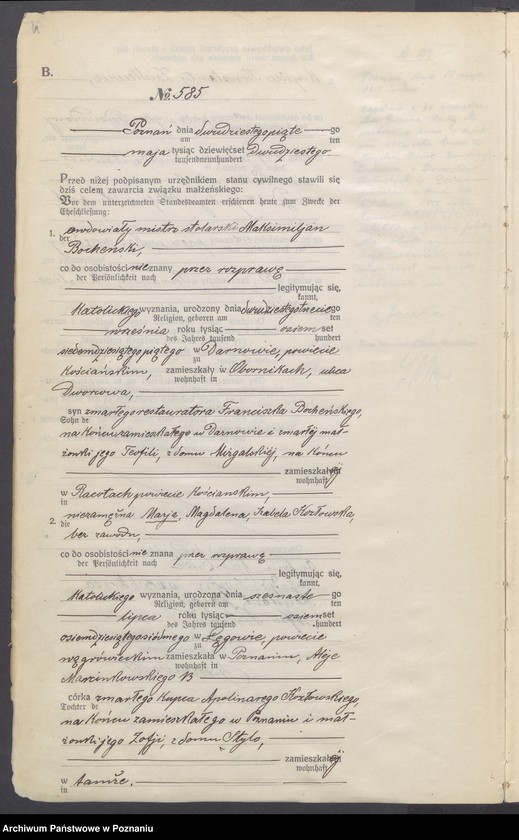 B.
No. 585
Poznań dnia dwudziestegopiąte go
am ten
maja tysiąc dziewięćset Dwudziestego
tausendneunhundert
Przed niżej podpisanym urzędnikiem stanu cywilnego stawili się
dziś celem zawarcia związku małżeńskiego:
Vor dem unterzeichneten Standesbeamten erschienen heute zum Zwecke der
Eheschließung:
1. owdowiały mistrz stolarski Maksimiljan
der
Bocheński,
co do osobistości nie znany przez rozprawę
der Persönlichkeit nach
legitymując się,
kannt,
Katolickiego wyznania, urodzony dnia dwudziestegotrzeciego
Religion, geboren am ten
września roku tysiąc osiemset
des Jahres tausend hundert
siedemdziesiątego piątego w Darnowie, powiecie
zu
Kościańskim, zamieszkały w Obornikach, ulica
wohnhaft in
Dworcowa,
syn zmarłego restauratora Franciszka Bocheńskiego,
Sohn de
na końcu zamieszkałego w Darnowie i zmarłej mał-
żonki jego Teofili, z domu Mizgalskiej, na końcu
zamieszkałej
wohnhaft
w Racotach powiecie Kościanskim,
in
2. niezamężna Marja, Magdalena, Izabela Kozłowska,
die
bez zawodu,
co do osobistości nie znana przez rozprawę
der Persönlichkeit nach
legitymując się,
kannt,
Katolickiego wyznania, urodzona dnia szesnaste go
Religion, geboren am ten
lipca roku tysiąc osiemset
des Jahres tausend hundert
osiemdziesiątegosiódmego w Łęgowie, powiecie
zu
wągrówieckim zamieszkała w Poznaniu, Aleje
wohnhaft in
Marcinkowskiego 13
córka zmarłego kupca Apolinarego Kozłowskiego,
Tochter de
na końcu zamieszkałego w Poznaniu i mał-
żonki jego Zofji, z domu Stylo,
zamieszkałej
wohnhaft
w tamże.
in
Archiwum Państwowe w Poznaniu